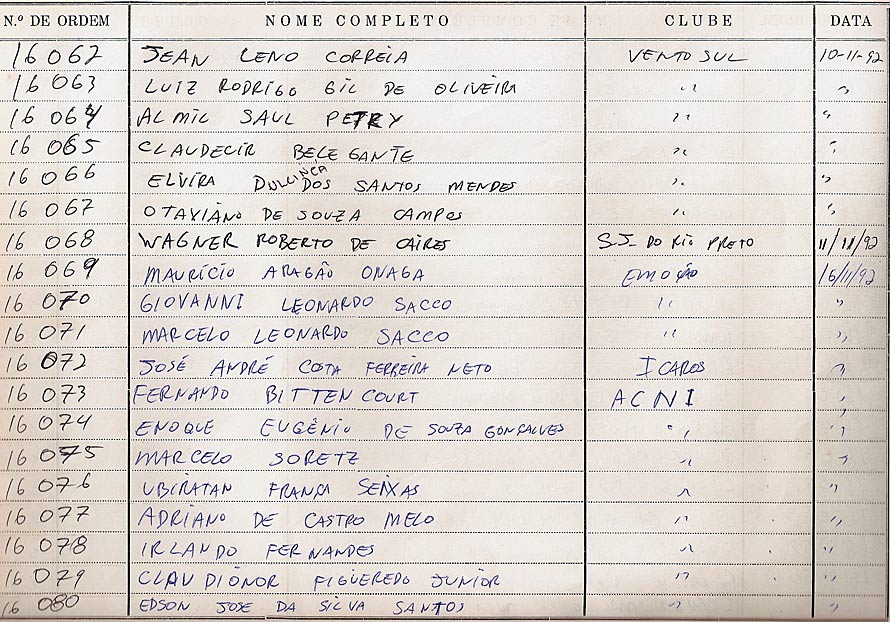 N.º DE ORDEM NOME COMPLETO CLUBE DATA
16 062 JEAN LENO CORREIA VENTO SUL 10-11-92
16 063 LUIZ RODRIGO GIL DE OLIVEIRA " "
16 064 ALMIL SAUL PETRY " "
16 065 CLAUDECIR BELEGANTE " "
16 066 ELVIRA DULCINÇA DOS SANTOS MENDES " "
16 067 OTAVIANO DE SOUZA CAMPOS " "
16 068 WAGNER ROBERTO DE CAIRES S.J. DO RIO PRETO 11/11/92
16 069 MAURÍCIO ARAGÃO ONAGA EMOÇÃO 16/11/92
16 070 GIOVANNI LEONARDO SACCO " "
16 071 MARCELO LEONARDO SACCO " "
16 072 JOSÉ ANDRÉ COSTA FERREIRA NETO ICAROS "
16 073 FERNANDO BITTENCOURT ACNI "
16 074 ENOQUE EUGÊNIO DE SOUZA GONÇALVES " "
16 075 MARCELO SORETZ " "
16 076 UBIRATAN FRANÇA SEIXAS " "
16 077 ADRIANO DE CASTRO MELO " "
16 078 IRLANDO FERNANDES " "
16 079 CLAUDIONOR FIGUEREDO JUNIOR " "
16 080 EDSON JOSE DA SILVA SANTOS " "